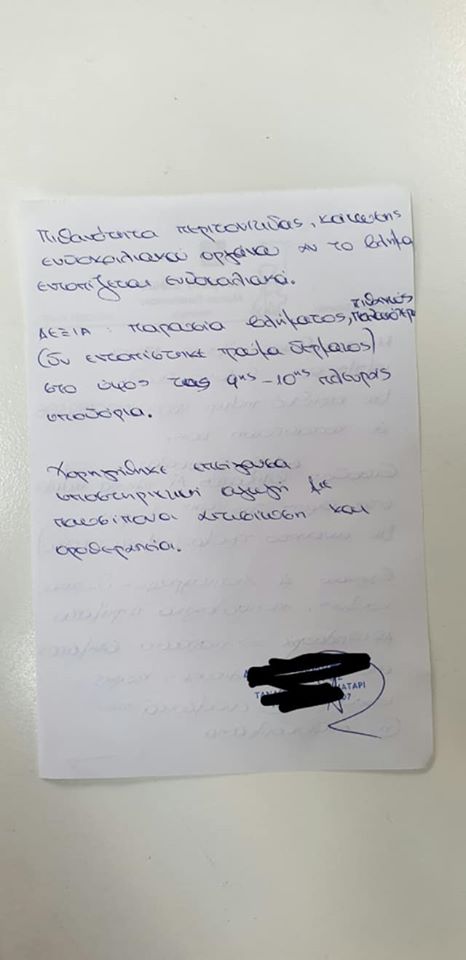 Πιθανότητα περιτονίτιδας, κάκωσης
ενδοκοιλιακού οργάνου αν το βλήμα
εντοπίζεται ενδοκοιλιακά.
ΔΕΞΙΑ: παρουσία βλήματος, πιθανώς παλαιότερ
(δεν εντοπίστηκε τραύμα δέρματος)
στο ύψος της 9ης-10ης πλευράς
υποδόρια.
Χορηγήθηκε επείγουσα
υποστηρικτική αγωγή με
παυσίπονα αντιβίωση και
οροθεραπεία.
ΤΑΝΑ ΑΤΑΡΙ